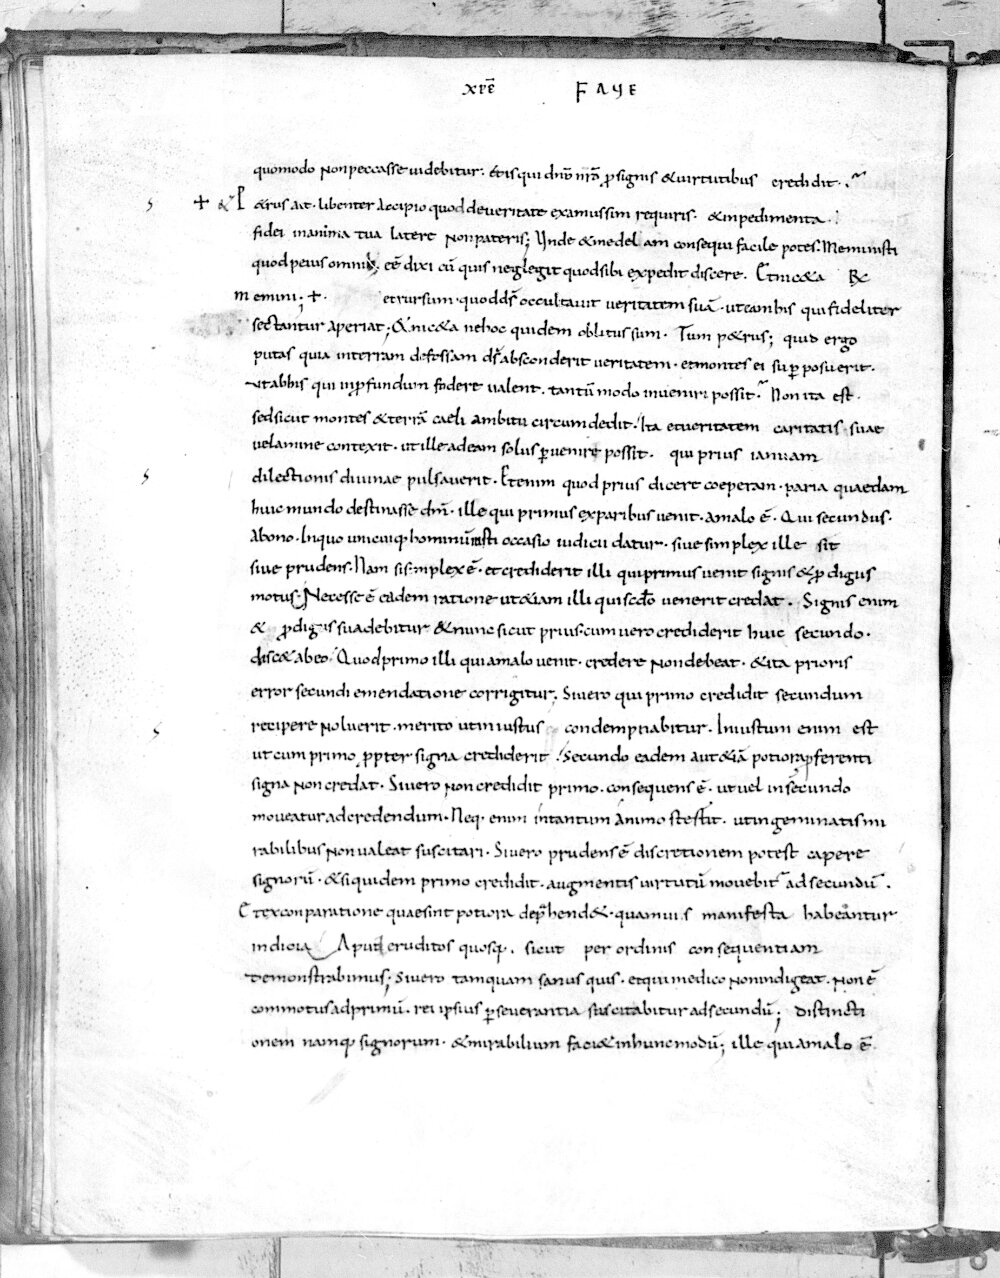 xp̄e FAVE
quomodo non peccasse uidebitur. Et is qui dnm̄ nr̄m ꝓ signis & uirtutibus credidit.
+ & P&rus ait. libenter accipio quod de ueritate examussim requiris. & inpedimenta
fidei in anima tua latere non pateris; Unde & medelam consequi facile potes. Meministi
quod peius omnibus. eē dixi cū quis neglegit quod sibi expedit discere. Et nic&a R̄
memini; +. et rursum quod ds̄ occultauit ueritatem suā. ut eam his qui fideliter
sectantur aperiat; & nic&a ne hoc quidem oblitus sum. Tum p&rus; quid ergo
putas quia in terram defossam ds̄ absconderit ueritatem. et montes ei suꝑposuerit.
ut ab his qui in ꝓfundum fodere ualent. tantū modo inueniri possit. Non ita est.
sed sicut montes & terrā caeli ambitu circumdedit. Ita et ueritatem caritatis suae
uelamine contexit. ut ille ad eam solus ꝑuenire possit. qui prius ianuam
dilectionis diuinae pulsauerit. Etenim quod prius dicere coeperam. paria quaedam
huic mundo destinasse dm̄. ille qui primus ex paribus uenit. a malo ē. Qui secundus.
a bono. In quo unicuiq; hominum isti occasio iudicii datur. siue simplex ille sit
siue prudens. Nam si simplex ē. et crediderit illi qui primus uenit signis & ꝓdigiis
motus. Necesse ē eadem ratione ut &iam illi qui scd̄o uenerit credat. Signis enim
& ꝓdigiis suadebitur & nunc sicut prius. cum uero crediderit huic secundo.
disc& ab eo. Quod primo illi qui a malo uenit. credere non debeat. & ita prioris
error secundi emendatione corrigitur. Si uero qui primo credidit secundum
recipere noluerit. merito ut iniustus condempnabitur. Iniustum enim est
ut cum primo ꝓpter signa crediderit. Secundo eadem aut &iā potiora ꝓferenti
signa non credat. Si uero non credidit primo. consequens ē. ut uel in secundo
moueatur ad credendum. Neq. enim in tantum animo stestit. ut ingeminatis mi
rabilibus non ualeat suscitari. Si uero prudens ē discretionem potest capere
signorū. & siquidem primo credidit. augmentis uirtutū mouebit̄ ad secundū.
Et ex conparatione quae sint potiora depͭhend&. quamuis manifesta habeantur
indicia Aput eruditos quosq. sicut per ordinis consequentiam
demonstrabimus; Si uero tamquam sanus quis. et qui medico non indigeat. non ē
commotus ad primū. rei ipsius ꝑseuerantia suscitabitur ad secundū; distincti
onem namq; signorum. & mirabilium faci& in hunc modū; ille qui a malo ē.